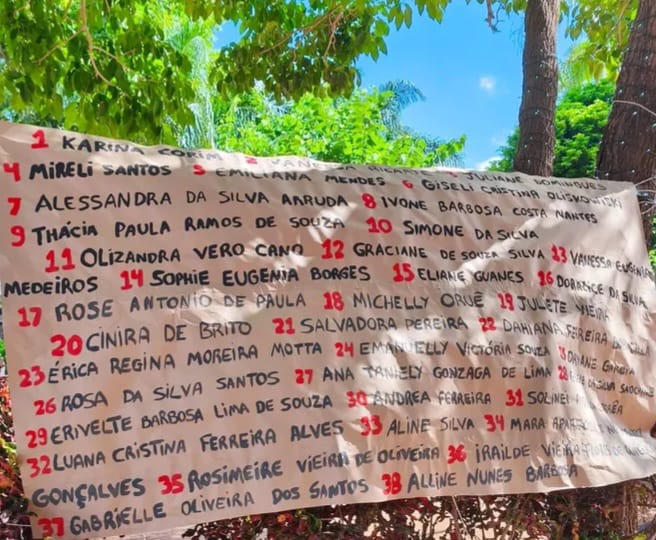 1 KARINA CORIM 2 VANESSA RICARTE JULIANE DOMINGUES
4 MIRELI SANTOS 5 EMILIANA MENDES 6 GISELI CRISTINA OLISKOWISKI
7 ALESSANDRA DA SILVA ARRUDA 8 IVONE BARBOSA COSTA NANTES
9 THÁCIA PAULA RAMOS DE SOUZA 10 SIMONE DA SILVA
11 OLIZANDRA VERO CANO 12 GRACIANE DE SOUZA SILVA 13 VANESSA EUGÊNIA
MEDEIROS 14 SOPHIE EUGENIA BORGES 15 ELIANE GUANES 16 DORALICE DA SILVA
17 ROSE ANTONIO DE PAULA 18 MICHELLY ORUÊ 19 JULIETE VIEIRA
20 CINIRA DE BRITO 21 SALVADORA PEREIRA 22 DAHIANA FERREIRA
23 ÉRICA REGINA MOREIRA MOTTA 24 EMANUELLY VICTÓRIA SOUZA DAYANE GARCIA
26 ROSA DA SILVA SANTOS 27 ANA TANIELY GONZAGA DE LIMA 28 DA SILVA
29 ERIVELTE BARBOSA LIMA DE SOUZA 30 ANDREA FERREIRA 31 SOLINEI
32 LUANA CRISTINA FERREIRA ALVES 33 ALINE SILVA 34 MARA
GONÇALVES 35 ROSIMEIRE VIEIRA DE OLIVEIRA 36 IRAILDE VIEIRA FLORES DE
37 GABRIELLE OLIVEIRA DOS SANTOS 38 ALLINE NUNES BARBOSA